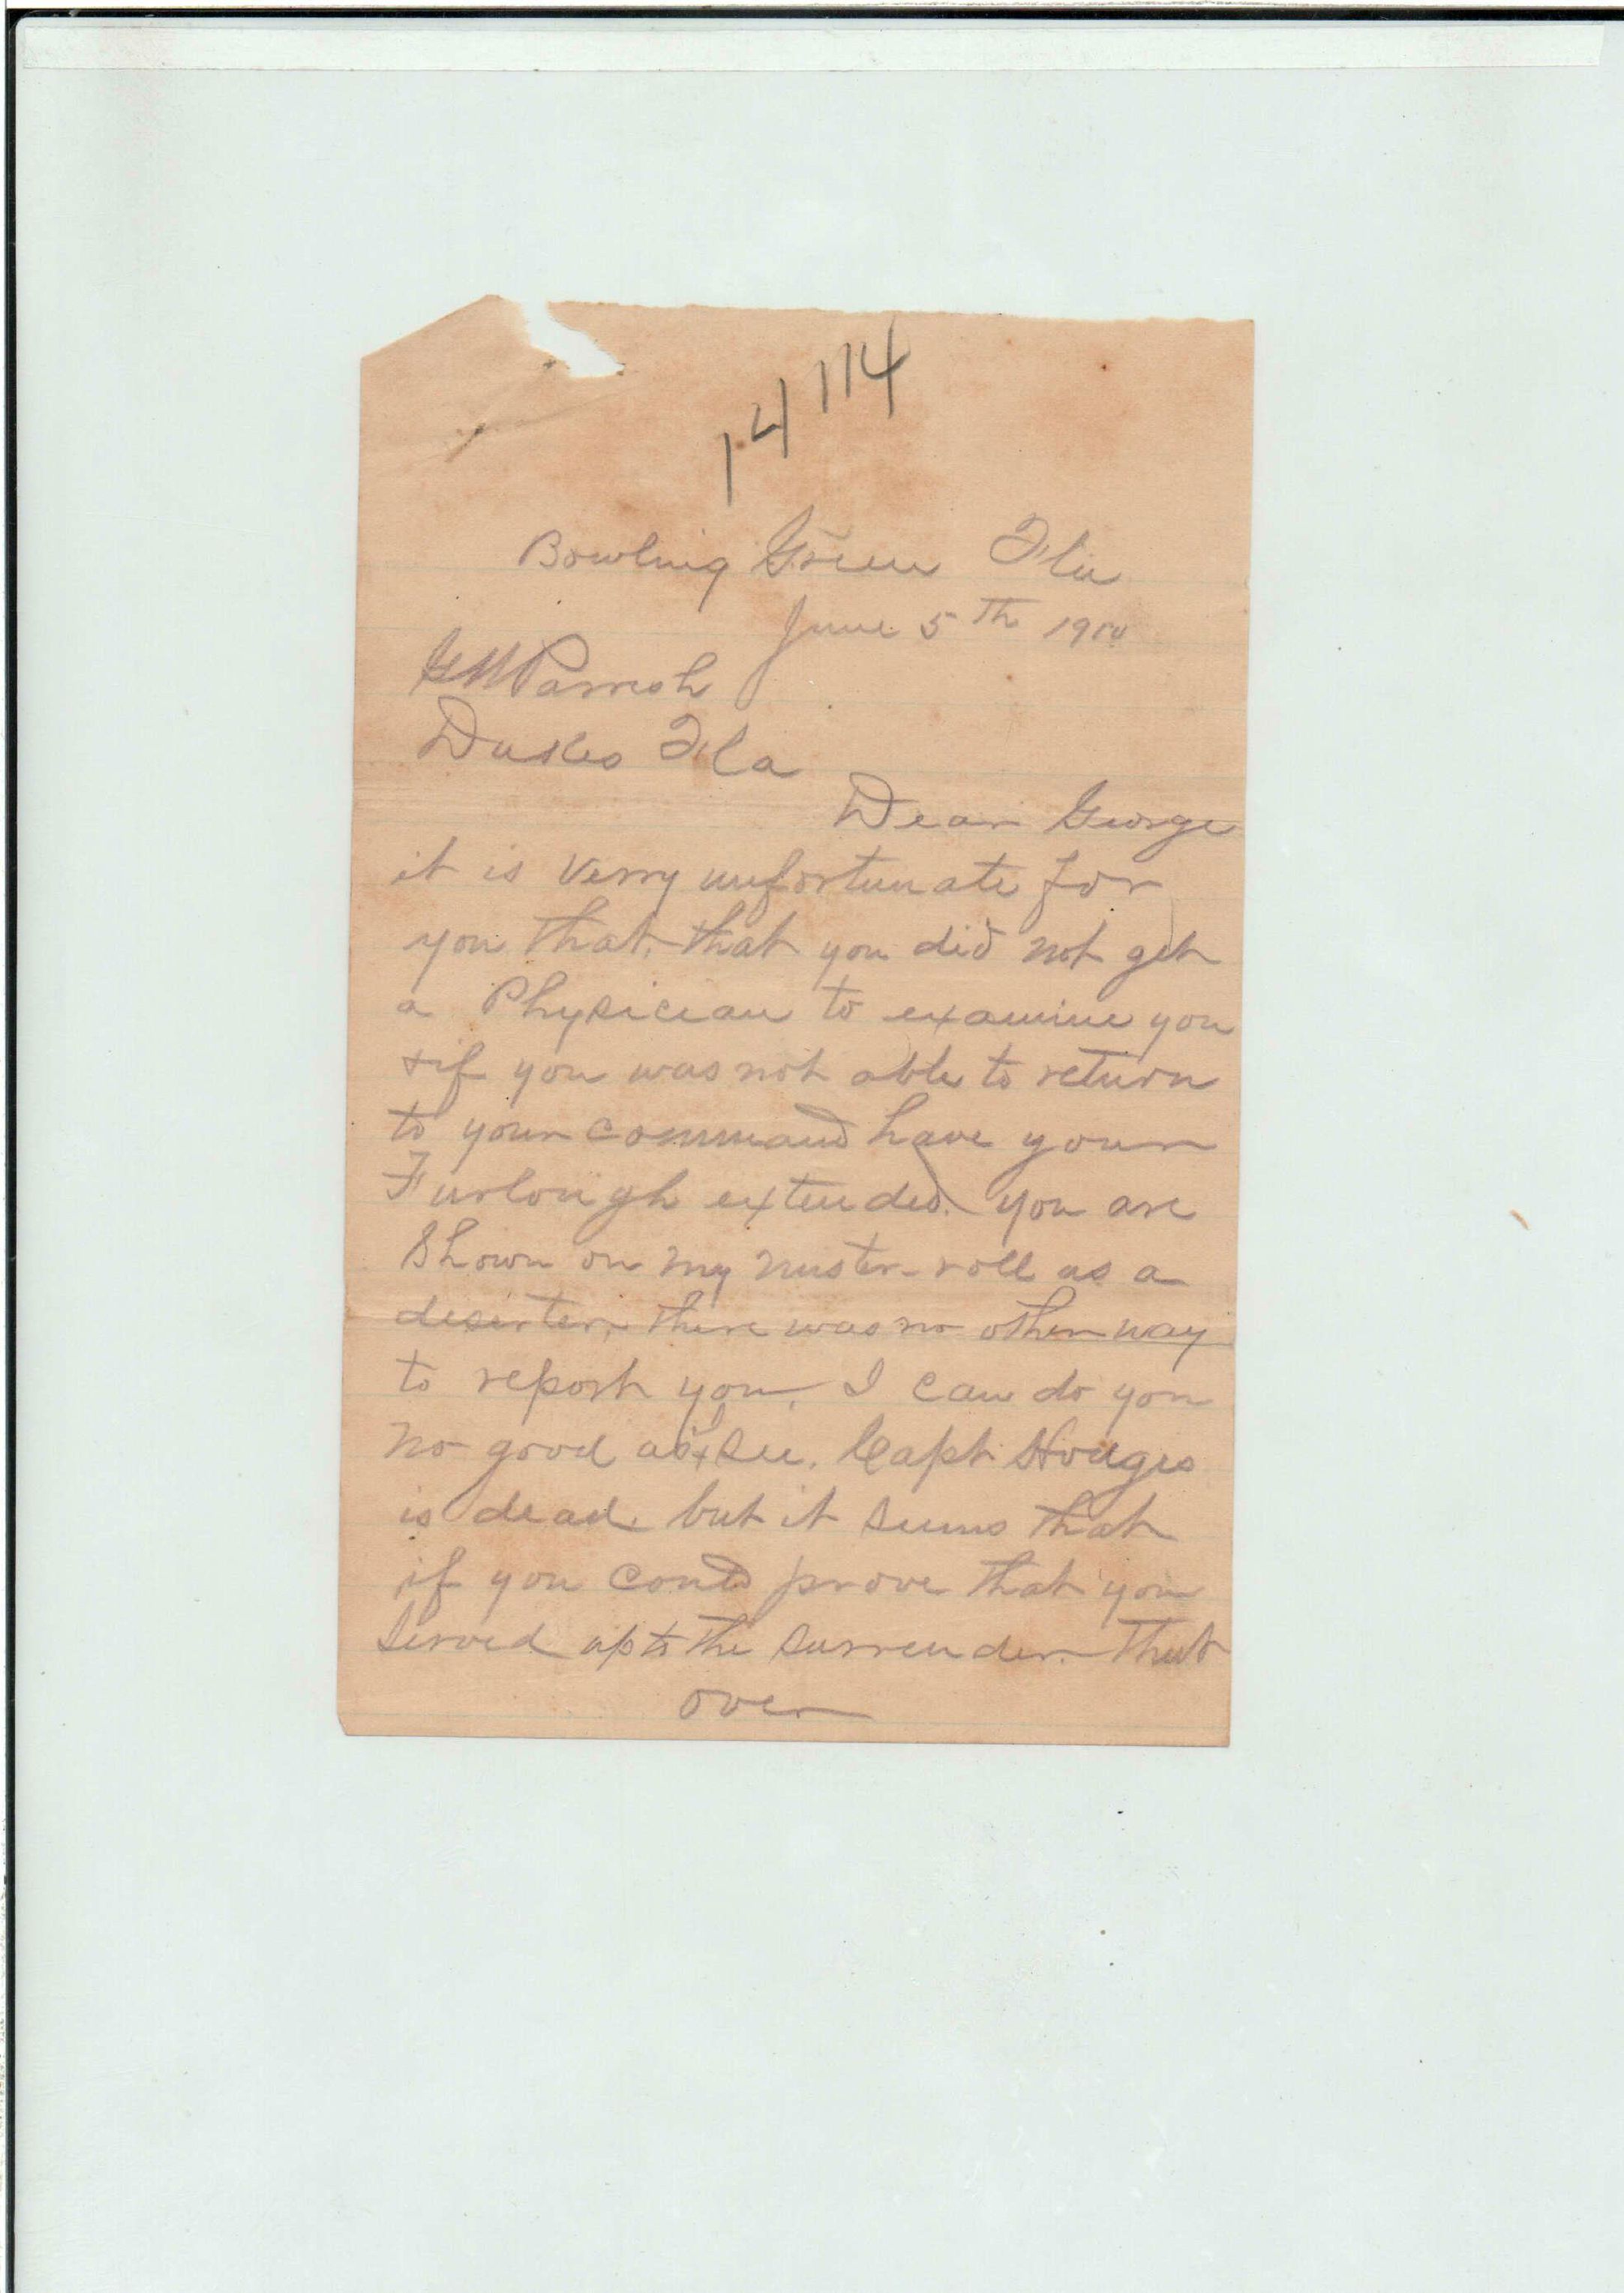 14114
Bowling Green Fla
June 5th 1910
G W Parrish
Dukes Fla
Dear George
it is verry unfortunate for
you that, that you did not get
a Physician to examine you
& if you was not able to return
to your command have your
Furlough extended. you are
Shown on my muster-roll as a
deserter, there was no other way
to report you, I can do you
no good as I see. Capt Hodges
is dead, but it seems that
if you could prove that you
served up to the surrender. that
over